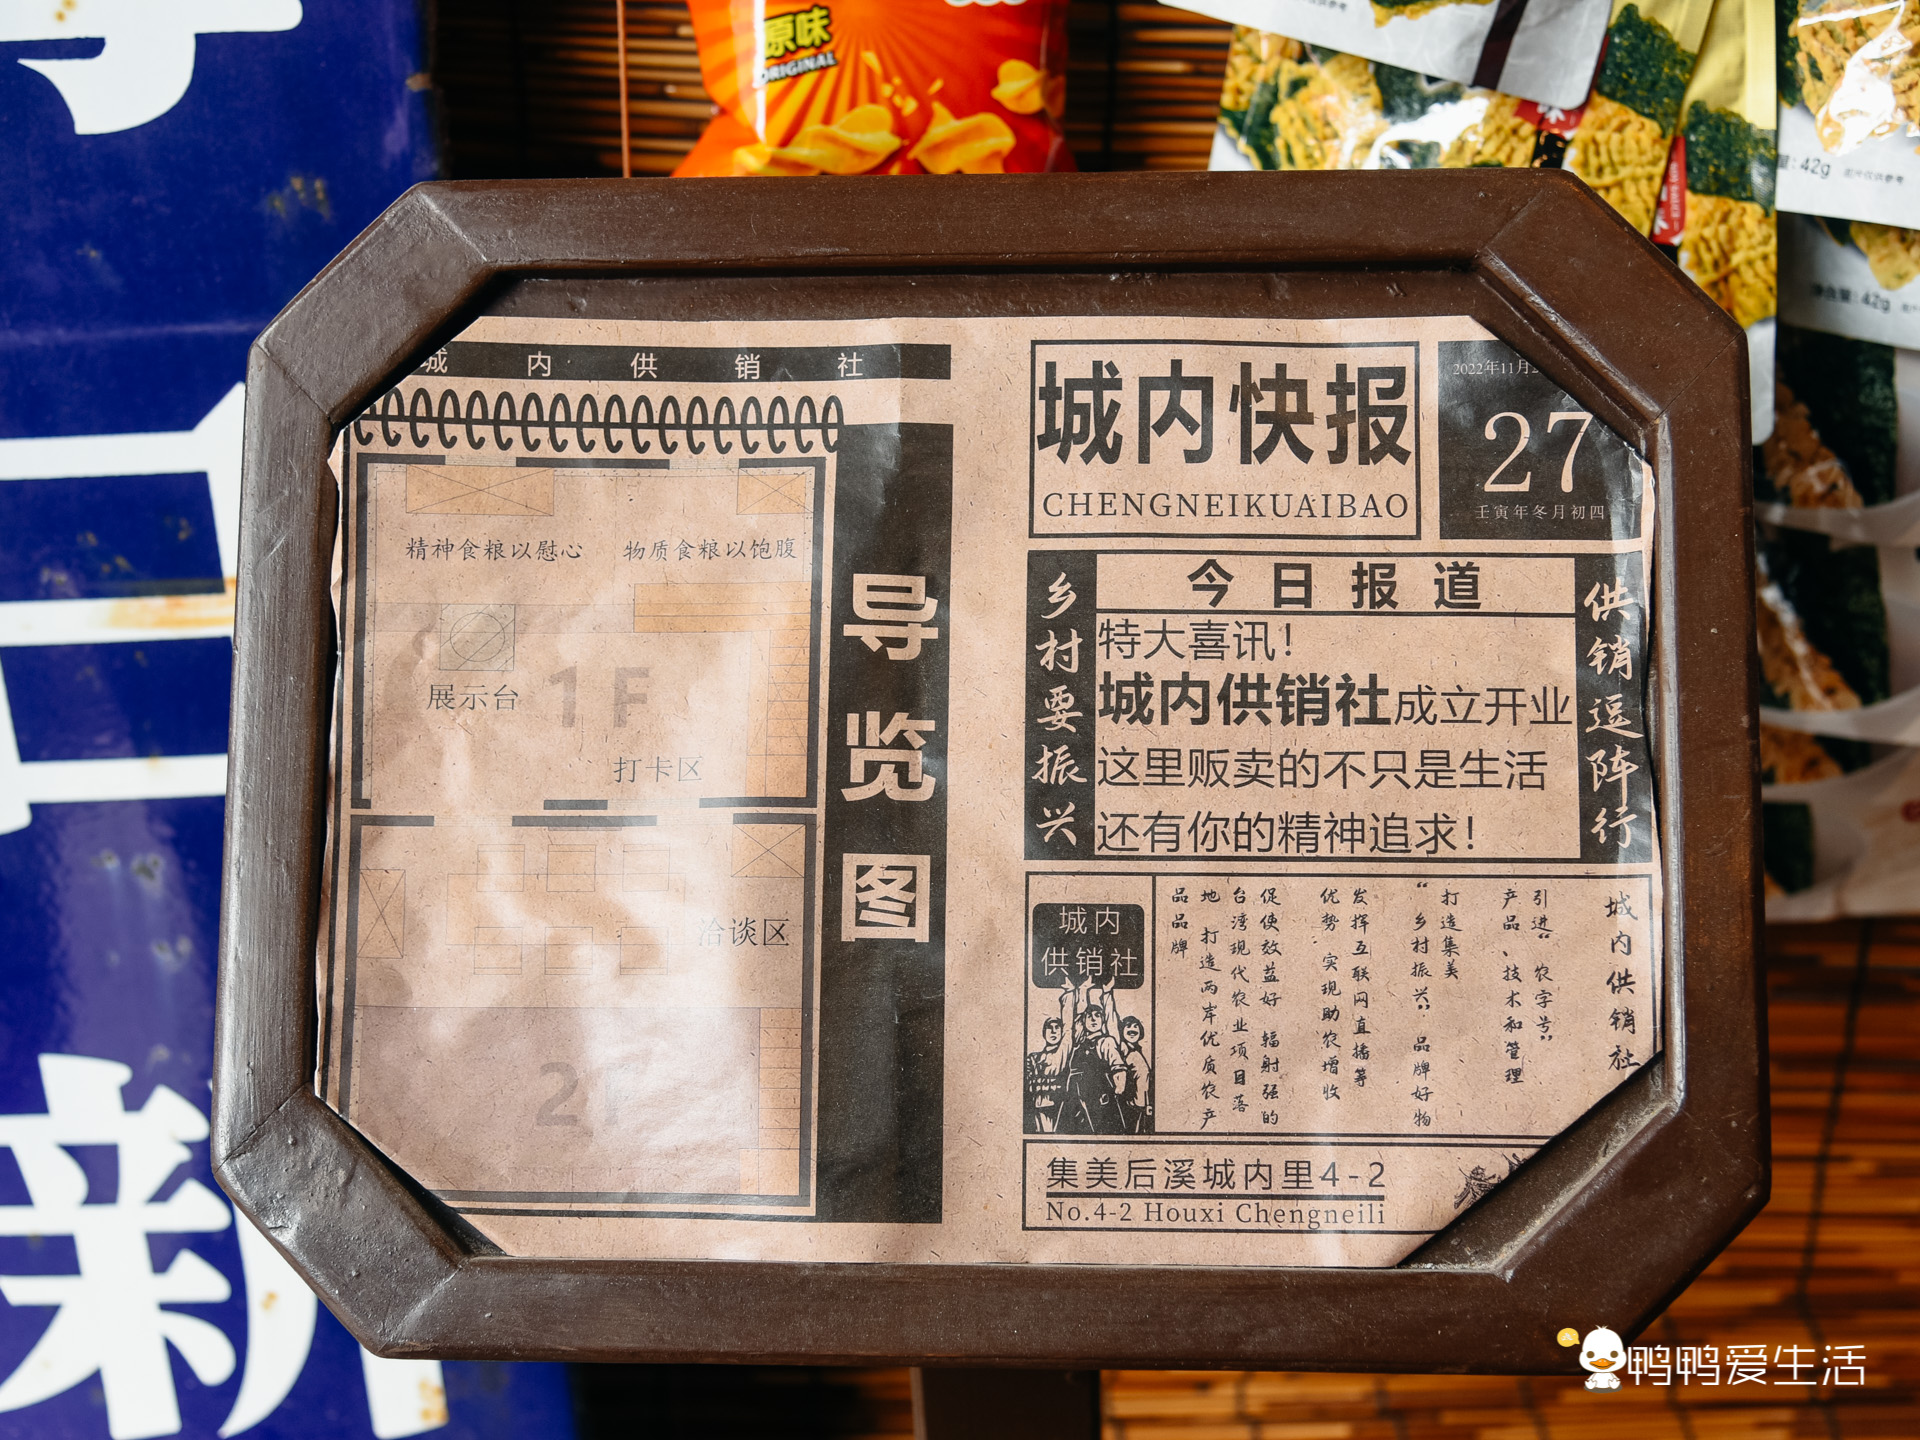 原味
ORIGINAL
42g
图片仅供参考
净含量:42g
新
城内供销社
精神食粮以慰心
物质食粮以饱腹
展示台
1F
打卡区
洽谈区
2F
导览图
城内快报
CHENGNEIKUAIBAO
2022年11月
27
壬寅年冬月初四
乡村要振兴
今日报道
特大喜讯！
城内供销社成立开业
这里贩卖的不只是生活
还有你的精神追求！
供销逗阵行
城内
供销社
城内供销社
引进“农字号”
产品、技术和管理
打造集美
“乡村振兴”品牌好物
发挥互联网直播等
优势 实现助农增收
促使效益好 辐射强的
台湾现代农业项目落
地 打造两岸优质农产
品品牌
集美后溪城内里4-2
No.4-2 Houxi Chengneili
鸭鸭爱生活